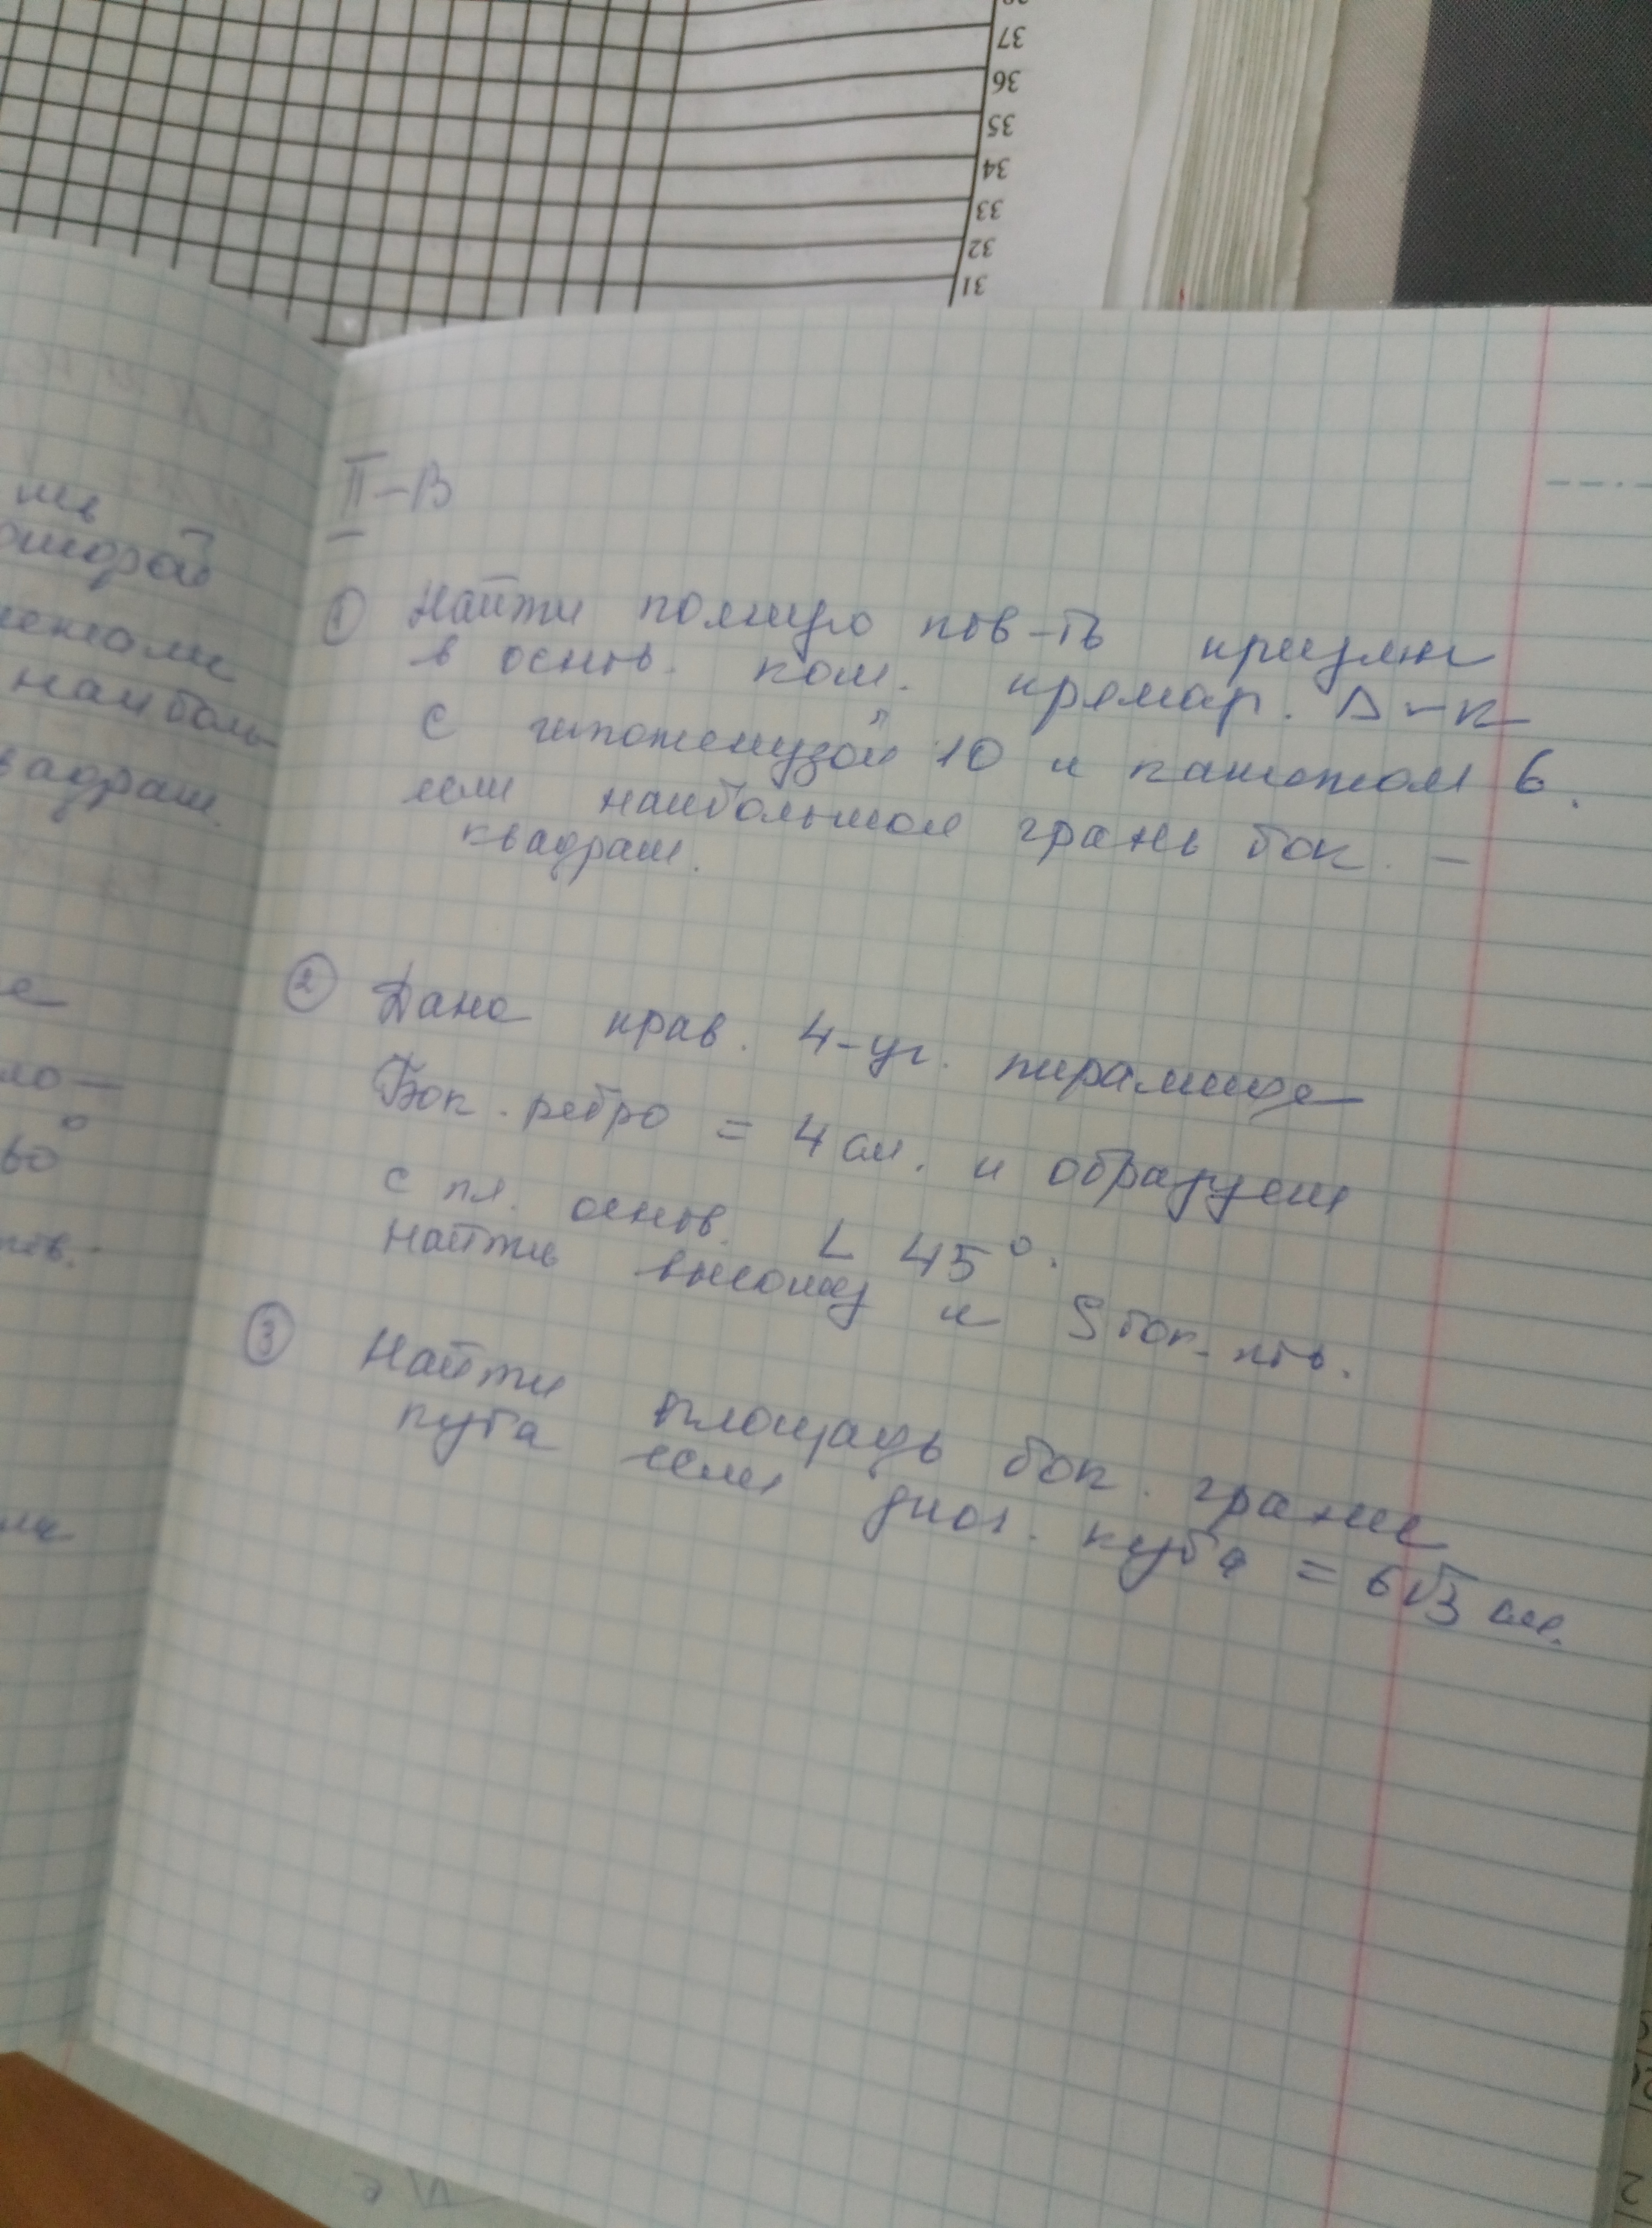 37
36
35
34
33
32
31
II-В
① Найти полную пов-ть призмы
в основ. кот. прямоуг. Δ-к
с гипотенузой 10 и катетом 6.
если наибольшая грань бок. –
квадрат.
② Дана прав. 4-уг. пирамида
Бок. ребро = 4 см. и образует
с пл. основ. ∠ 45°.
Найти высоту и S бок. пов.
③ Найти площадь бок. грани
куба если диаг. куба = 6√3 см.
наиболь
квадрат.